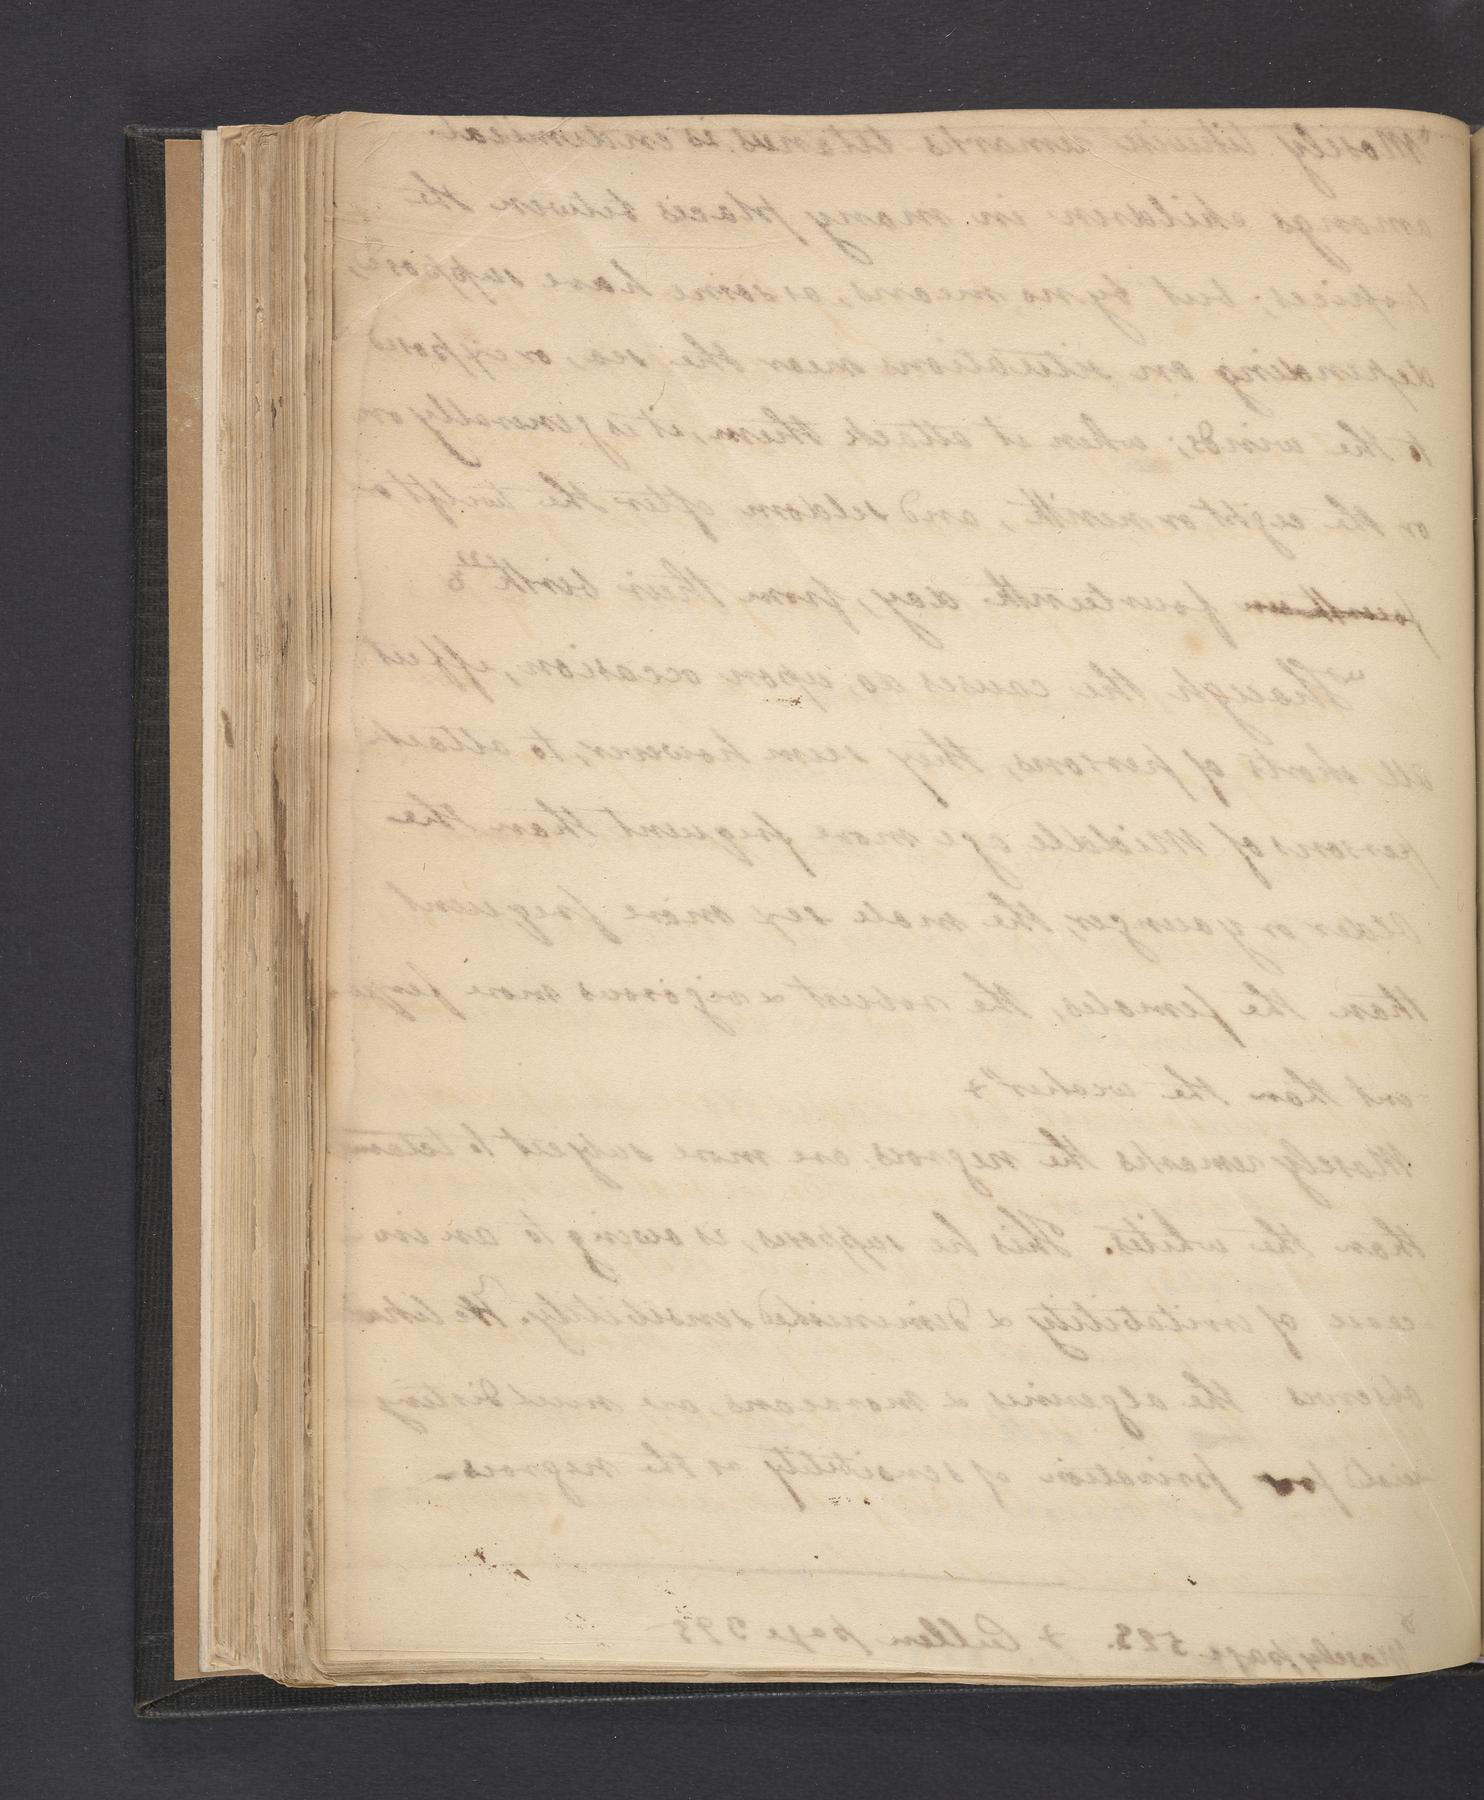 "Mosely likewise remarks tetanus is endemical
amongs children in many places between the
tropics; but by no means, as some have suppose,
depending on situations near the sea, or exposed
to the winds; when it attack them, it is generally on
or the eight or nenth, and seldom after the twelft or
fourteen fourteenth day, from their birth"
"Though the causes do, upon occasion, effect
all shorts of persons, they seem however, to attack
persons of Middle age more frequent than the
older or younger, the male sex more frequent
than the females, the robust & vigorous more frequ
-ent than the weaker" +
Mosely remarks the negroes are more subject to tetanus
than the whites. This he supposes, is owing to an in
-crease of irritability & diminished sensibility. He likewise
observes the algerines & moroccans, are much disting
-uish for privation of sensibility as the negroes.
Mosely page 522. + Cullen page